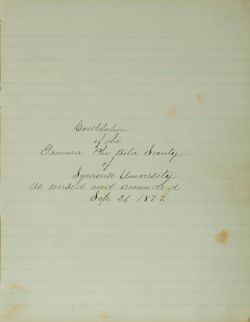 Constitution
of the
Gamma Phi Beta Society
of
Syracuse University
As revised and amended
Sept 21 1877.